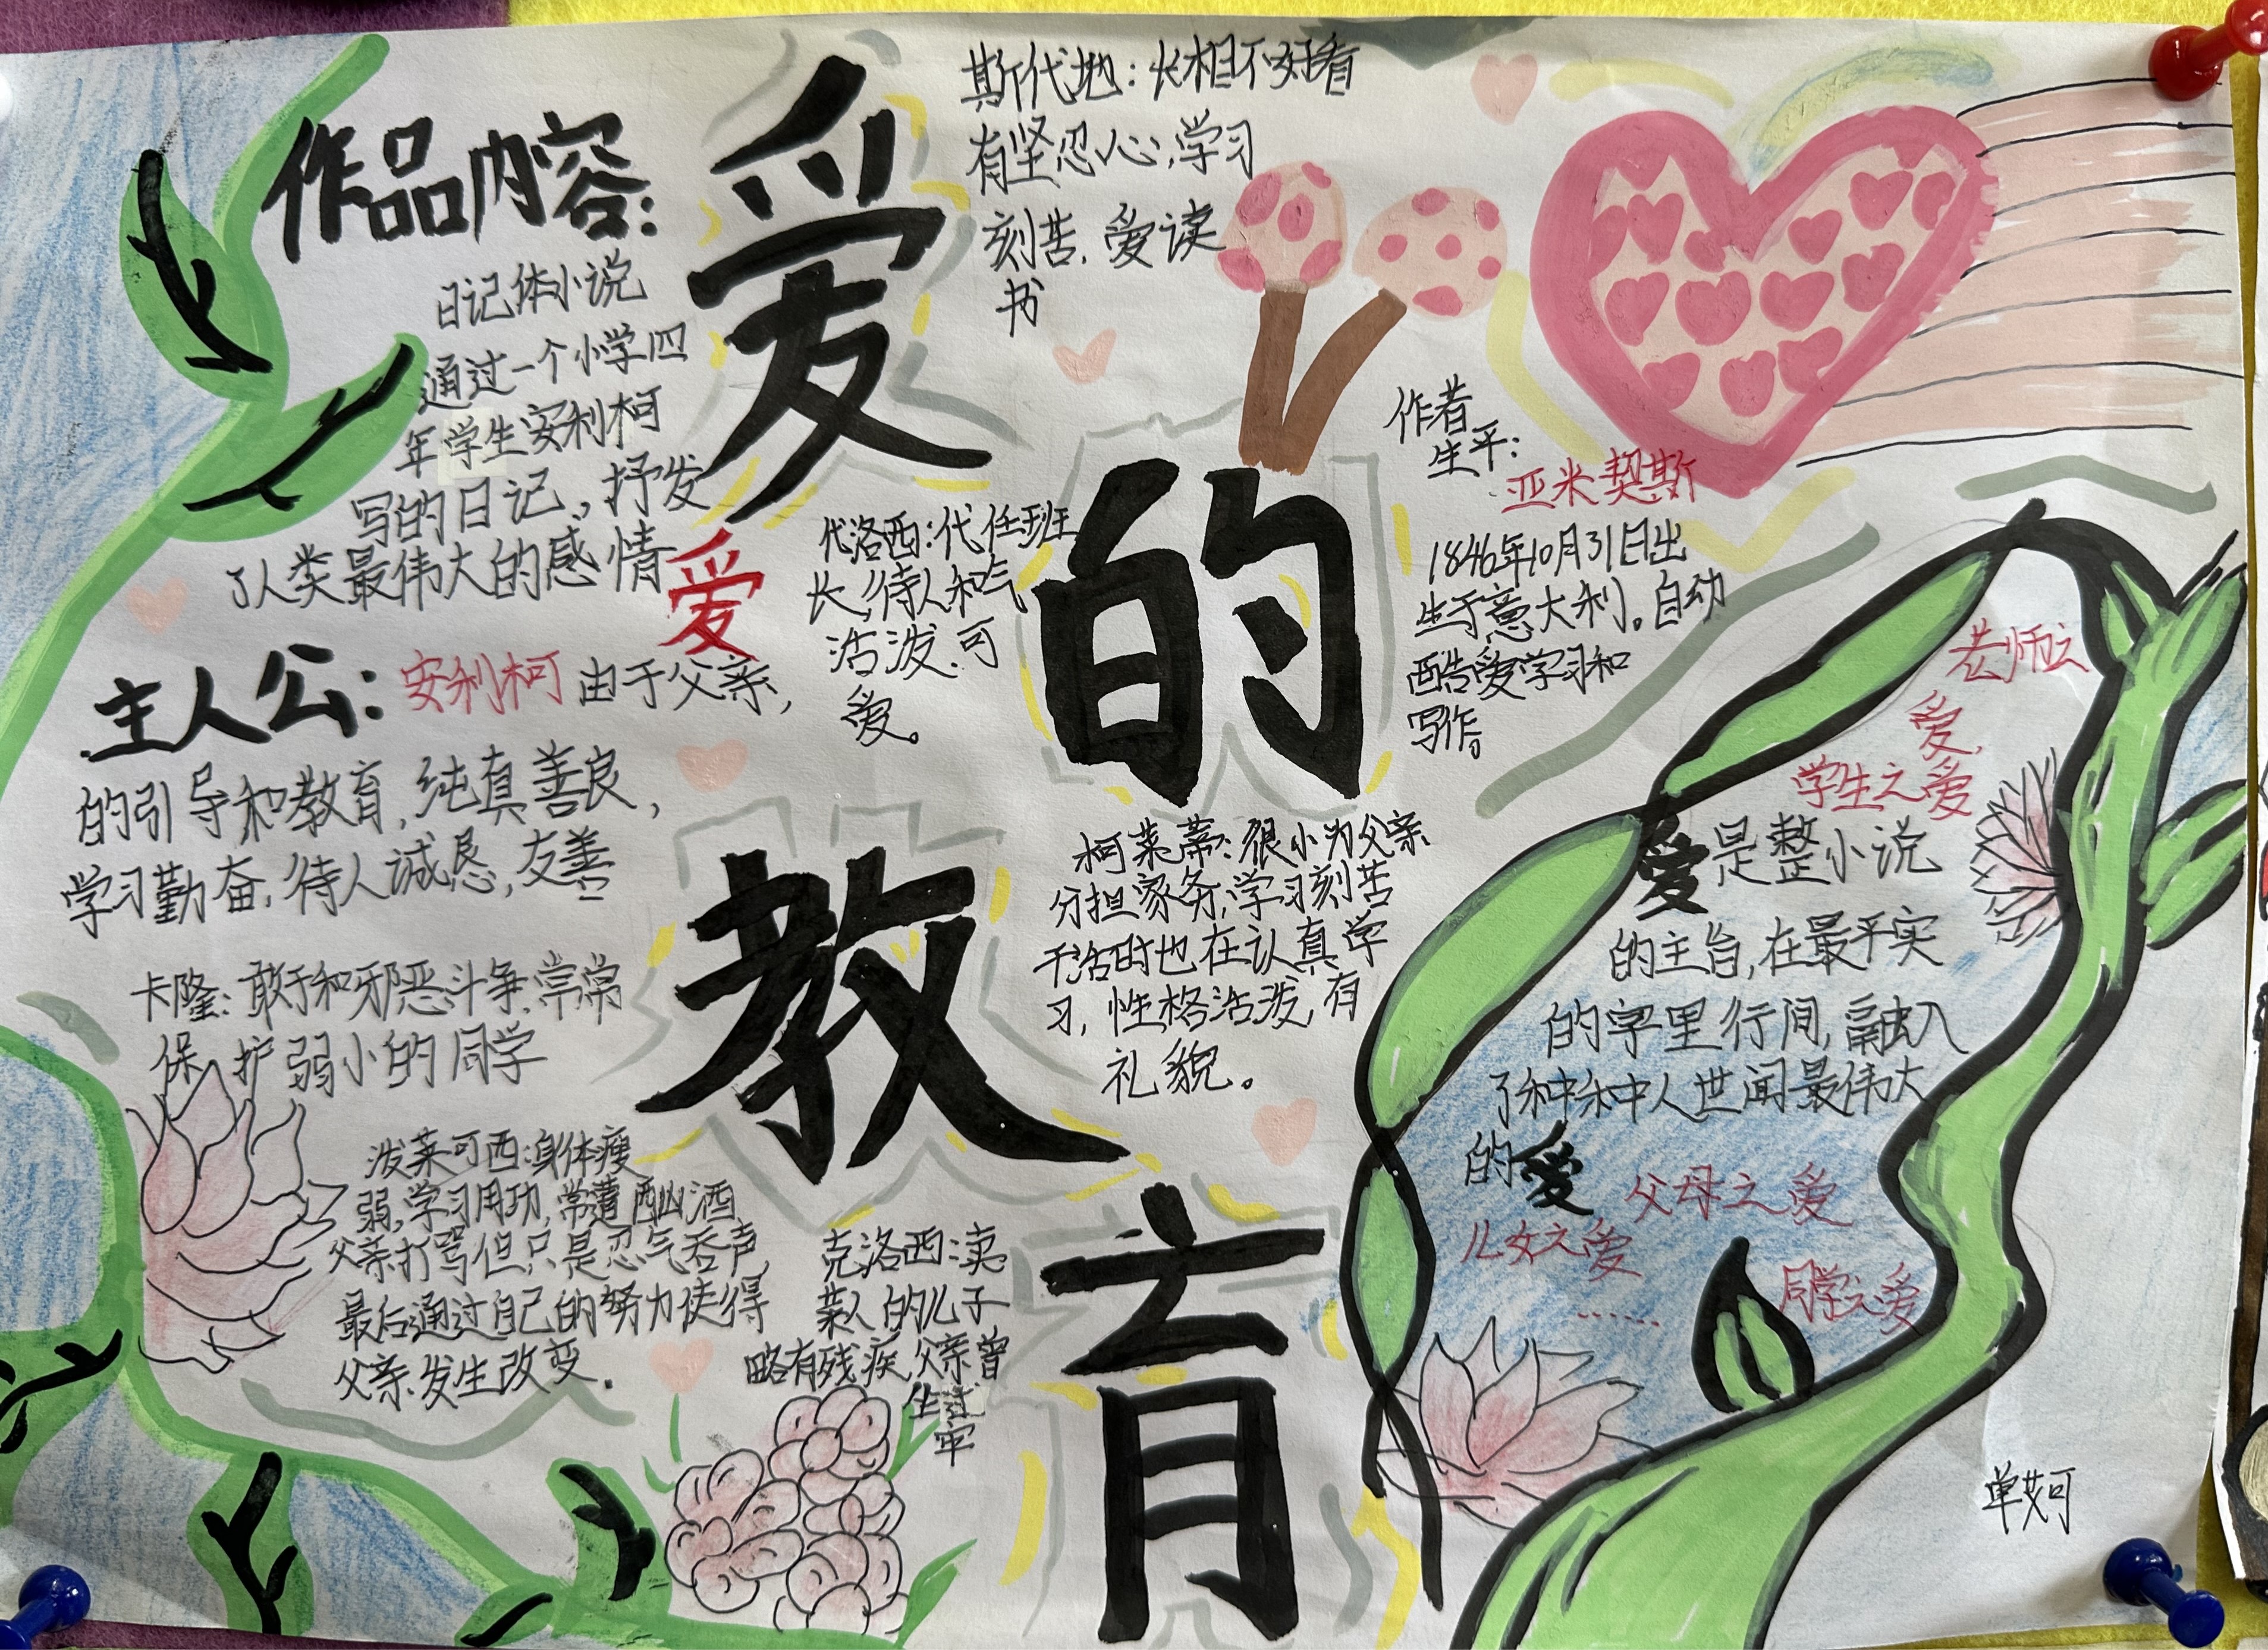 爱的教育
作品内容:
日记体小说
通过一个小学四
年学生安利柯
写的日记,抒发
了人类最伟大的感情
爱
主人公:安利柯由于父亲,
的引导和教育,纯真善良,
学习勤奋,待人诚恳,友善
卡隆:敢于和邪恶斗争.常常
保护弱小的同学
泼莱可西:身体瘦
弱,学习用功,常遭酗酒
父亲打骂但只是忍气吞声,
最后通过自己的努力使得
父亲发生改变.
斯代地:长相不好看
有坚忍心,学习
刻苦,爱读
书
代洛西:代任班
长,待人和气
活泼.可
爱。
柯莱蒂:很小为父亲
分担家务,学习刻苦
干活时也在认真学
习,性格活泼,有
礼貌。
克洛西:卖
菜人的儿子
略有残疾,父亲曾
坐过
牢
作者
生平:
亚米契斯
1846年10月31日出
生于意大利。自幼
酷爱学习和
写作。
老师之
爱,
学生之爱
爱是整小说
的主旨,在最平实
的字里行间,融入
了种种人世间最伟大
的爱
父母之爱
儿女之爱
同学之爱
......